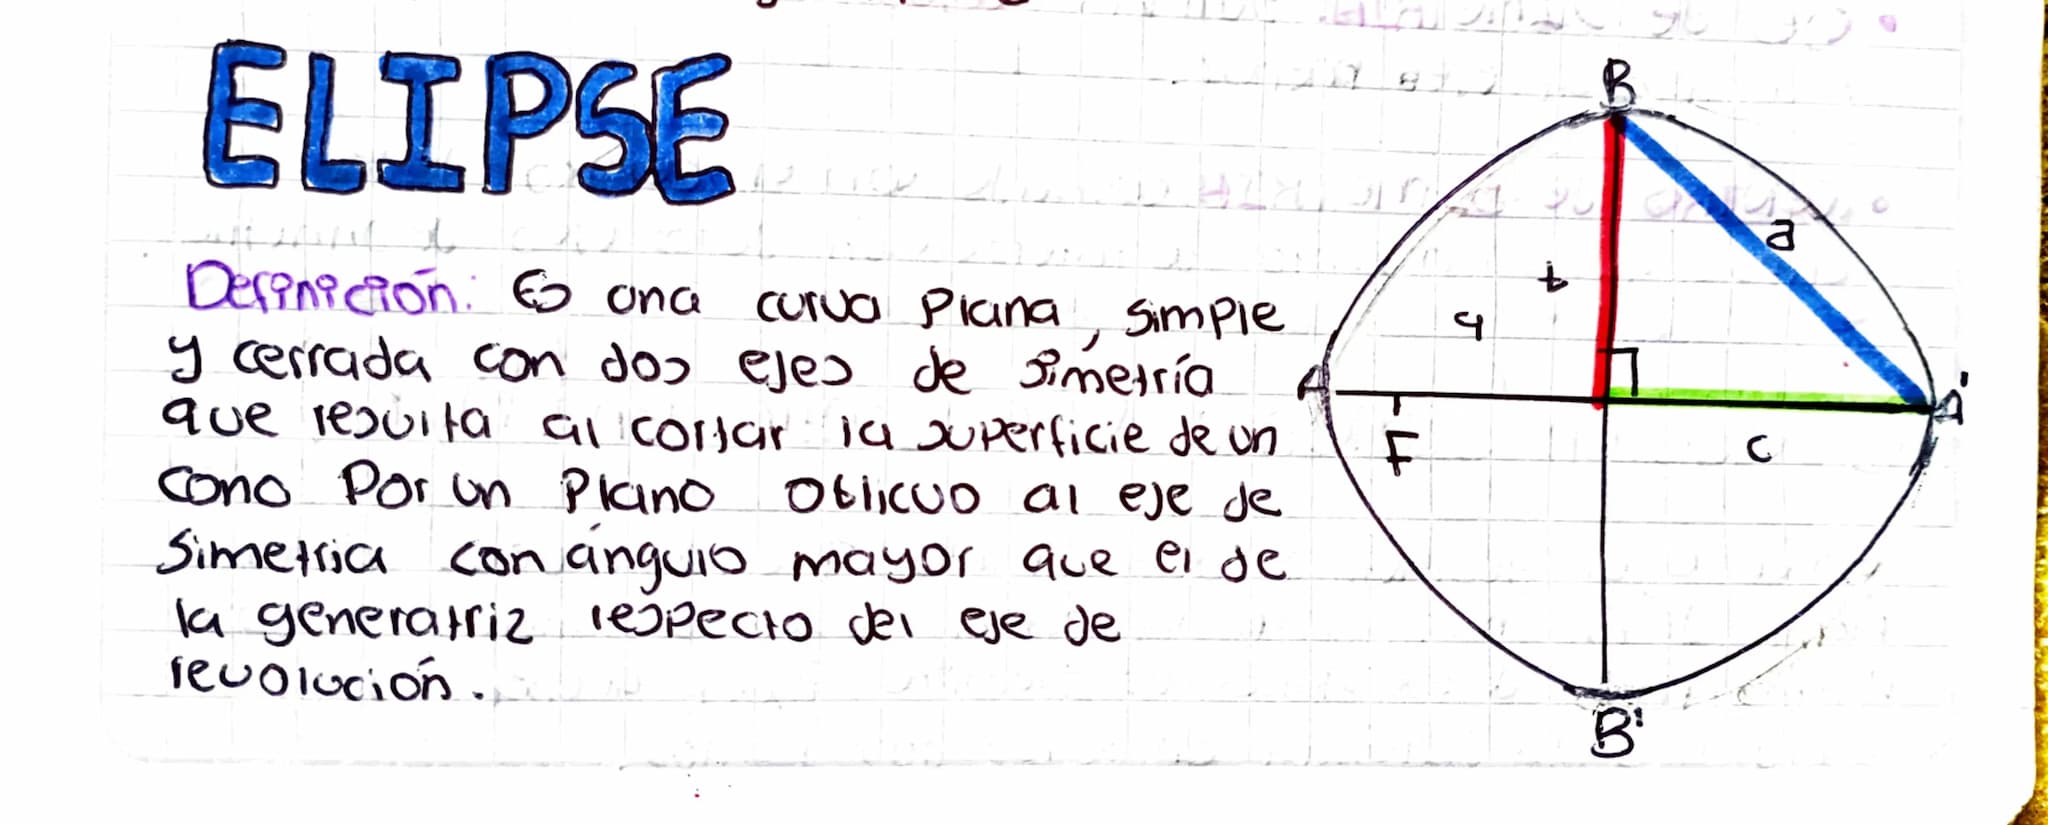 ELIPSE
Definición: Es una curva plana, simple
y cerrada con dos ejes de simetría
que resulta al cortar la superficie de un
cono por un plano oblicuo al eje de
simetria con ángulo mayor que el de
la generatriz respecto del eje de
revolución.
B
a
b
a
A
A'
F
c
B'